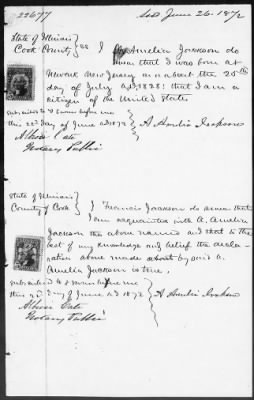 22677 Issd June 26. 1872
State of Illinois }
Cook County } ss I A Amelia Jackson do
swear that I was born at
Newark New Jersey on or about the 25th
day of July A.D. 1828: that I am a
citizen of the United States
subscribed & sworn before me
this 22d day of June A.D. 1872 } A Amelia Jackson
Notary Public
State of Illinois }
County of Cook } I Francis Jackson do swear that
I am acquainted with A. Amelia
Jackson the above named and that to the
best of my knowledge and belief the decla-
ration above made about by said A.
Amelia Jackson is true,
subscribed to & sworn before me
this 22d day of June A.D. 1872 } A Amelia Jackson
Notary Public